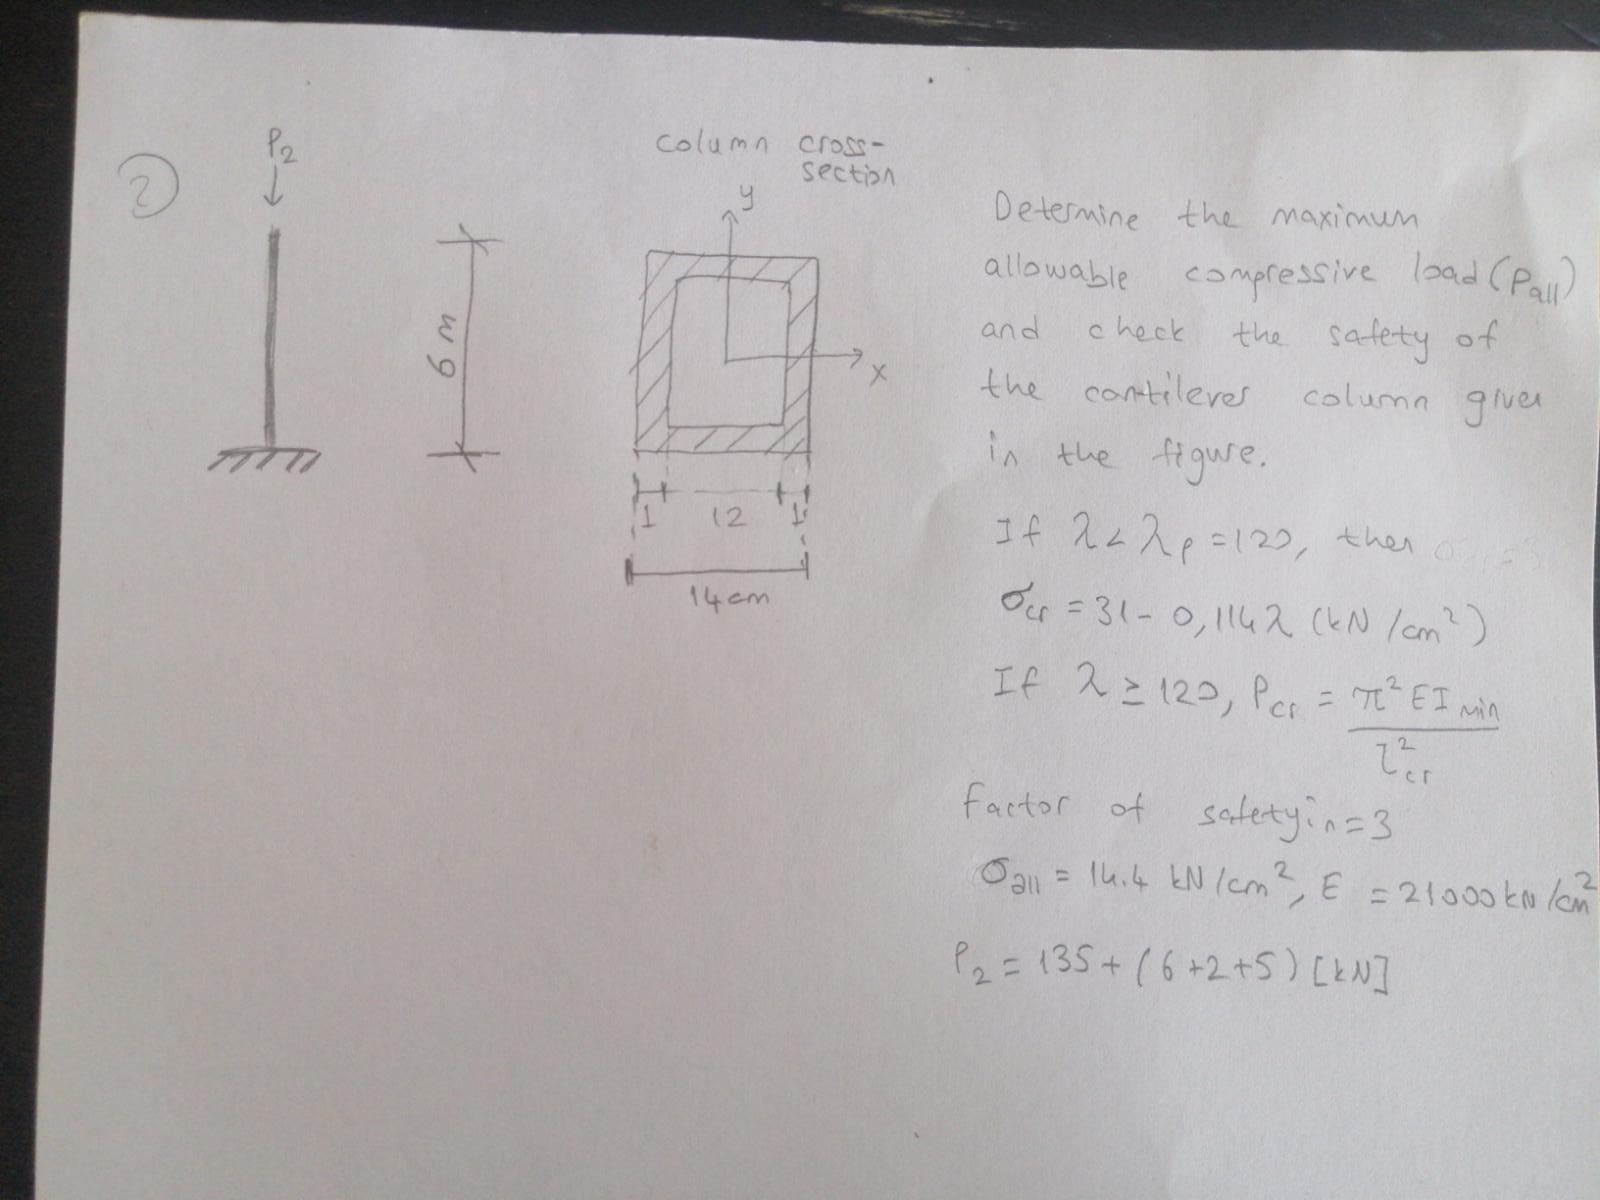 2
P2
6 m
column cross-
section
y
x
1 12 1
14cm
Determine the maximum
allowable compressive load (Pall)
and check the safety of
the cantilever column given
in the figure.
If λ < λp = 120, then
σcr = 31 - 0,114λ (kN/cm²)
If λ ≥ 120, Pcr = π² E I min
l²cr
factor of safety: n=3
σall = 14.4 kN/cm², E = 21000 kN/cm²
P2 = 135 + (6+2+5) [kN]